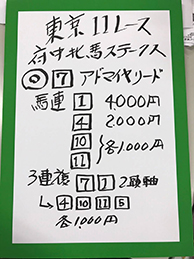 東京11レース
府中牝馬ステークス
◎ 7 アドマイヤリード
馬連 1 4,000円
4 2,000円
10
11 } 各1,000円
3連複 7 1 2頭軸
↳ 4 10 11 5
各1,000円